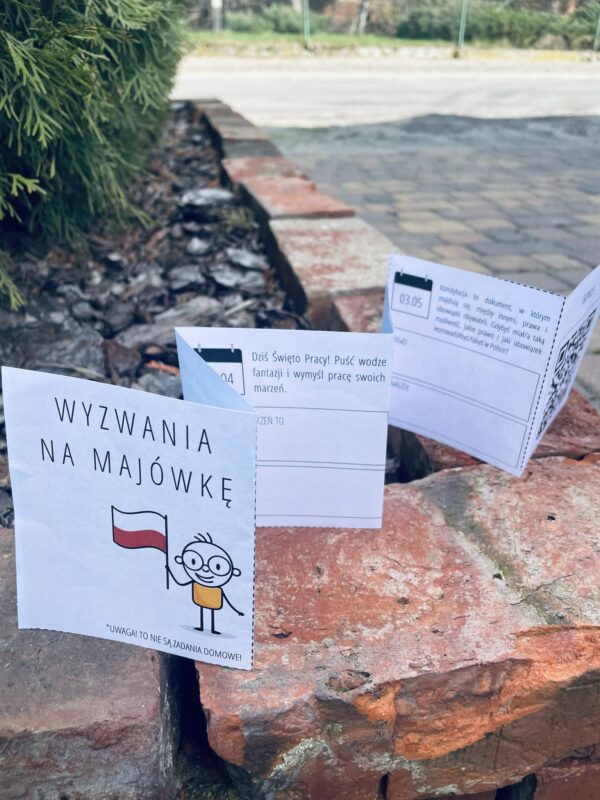 WYZWANIA
NA MAJÓWKĘ
*UWAGA! TO NIE SĄ ZADANIA DOMOWE!
04
Dziś Święto Pracy! Puść wodze
fantazji i wymyśl pracę swoich
marzeń.
RZEŃ TO
03.05
Konstytucja to dokument, w którym
znajdują się, między innymi, prawa i
obowiązki obywateli. Gdybyś miał/a taką
możliwość, jakie prawo i jaki obowiązek
wprowadziłbyś/łabyś w Polsce?